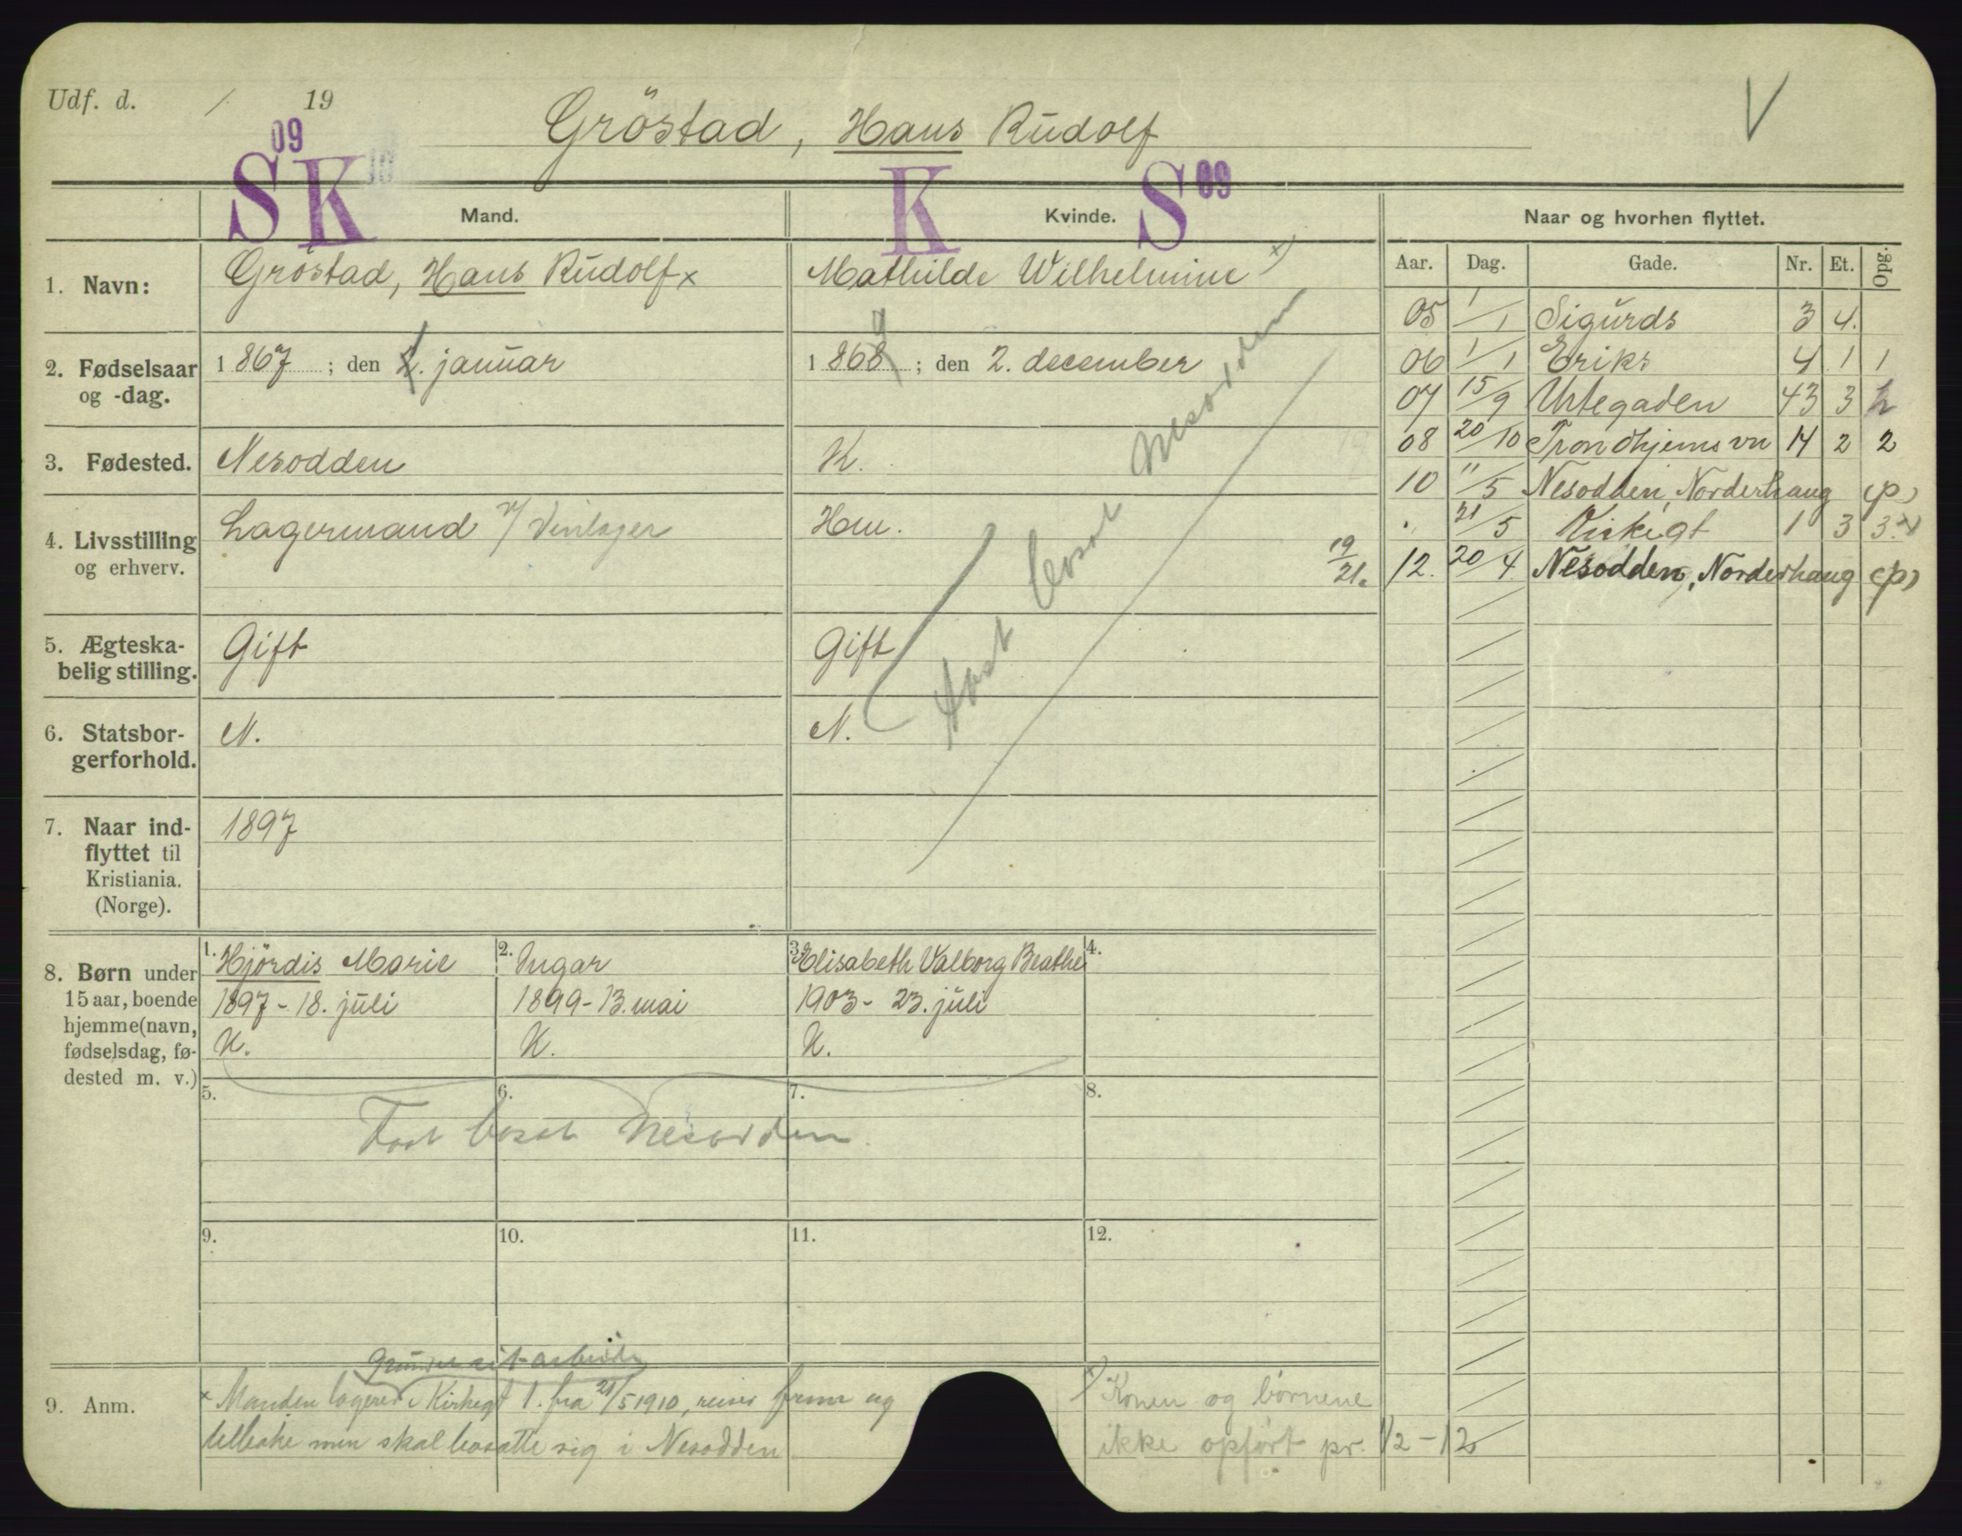 Udf. d. / 19
Gröstad, Hans Rudolf
V
09
S K 10
K S 09
Mand.
Kvinde.
Naar og hvorhen flyttet.
Aar. Dag. Gade. Nr. Et. Opg.
1. Navn:
Gröstad, Hans Rudolf x
Mathilde Wilhelmine x)
2. Fødselsaar
og -dag.
1867 ; den 2. januar
1868 ; den 2. december
9
3. Fødested.
Nesodden
K.
4. Livsstilling
og erhverv.
Lagermand v/ Vinlager
Hm.
19/21.
5. Ægteska-
belig stilling.
Gift
Gift
6. Statsbor-
gerforhold.
N.
N.
Fast bosat Nesodden
7. Naar ind-
flyttet til
Kristiania.
(Norge).
1897
05 1/1 Sigurds 3 4.
06 1/1 Eriks 4 1 1
07 15/9 Urtegaden 43 3
08 20/10 Trondhjems vn 14 2 2
10 11/5 Nesodden, Norderhaug (p)
" 21/5 Kirkegt 1 3 3.
12. 20/4 Nesodden, Norderhaug (p)
8. Børn under
15 aar, boende
hjemme (navn,
fødselsdag, fø-
dested m. v.)
1. Hjördis Marie
1897 - 18. juli
K.
2. Ingar
1899 - 13. mai
K.
3. Elisabeth Valborg Beathe
1903 - 23. juli
K.
4.
5. 6. 7. 8.
Fast bosat Nesodden
9. 10. 11. 12.
9. Anm.
grundet sit arbeide
x Manden logerer i Kirkegt 1. fra 21/5 1910, reiser frem og
tilbake men skal bosatte sig i Nesodden
x) Konen og börnene
ikke opfört pr. 1/2-12